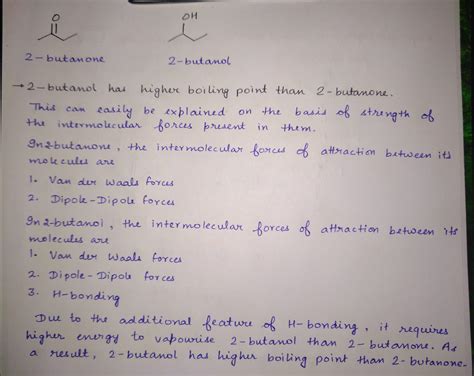 O
OH
2-butanone
2-butanol
→ 2-butanol has higher boiling point than 2-butanone.
This can easily be explained on the basis of strength of
the intermolecular forces present in them.
In 2-butanone, the intermolecular forces of attraction between its
molecules are
1. Van der Waals forces
2. Dipole-Dipole forces
In 2-butanol, the intermolecular forces of attraction between its
molecules are
1. Van der Waals forces
2. Dipole-Dipole forces
3. H-bonding
Due to the additional feature of H-bonding, it requires
higher energy to vapourise 2-butanol than 2-butanone. As
a result, 2-butanol has higher boiling point than 2-butanone.